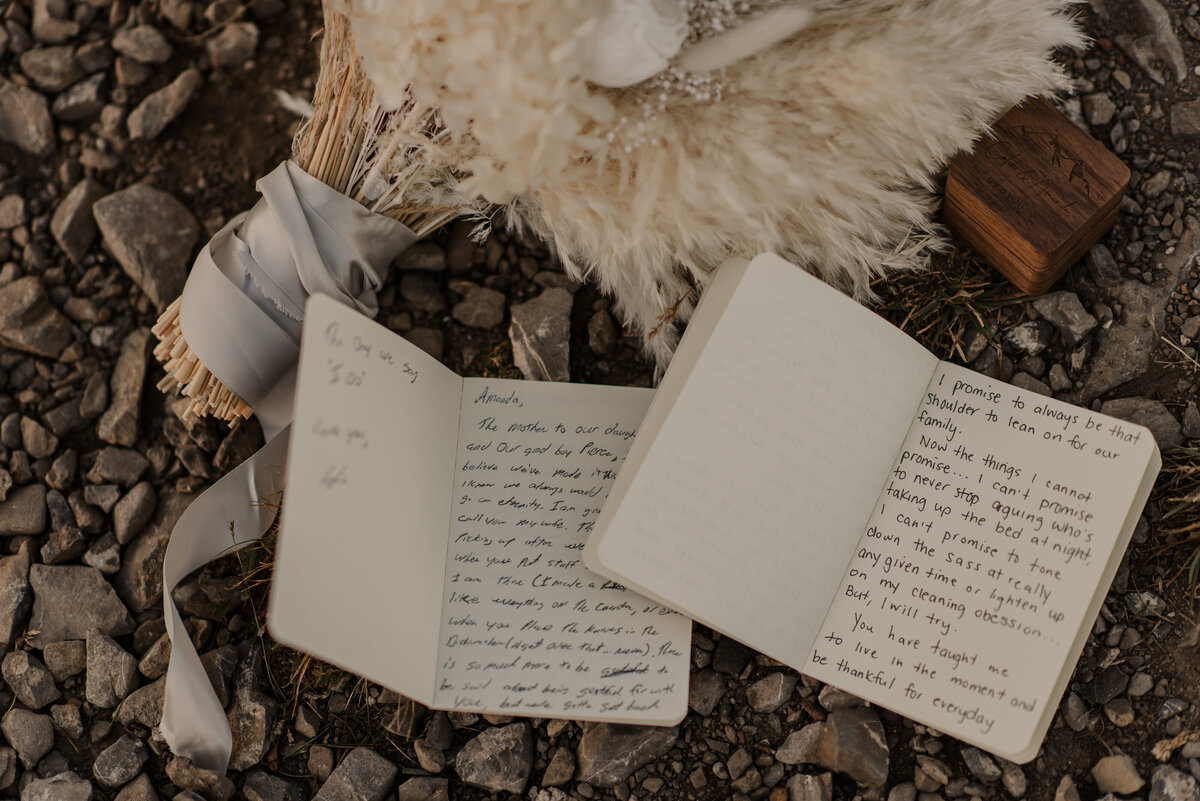 The Day we say
"I Do"
Love you,
Amanda,
The mother to our daugh
and Our good boy Pierce,
believe we've made it this
I know we always would
go an eternity. I am gra
call you my wife. Th
Picking up after
when you Put stuff
I am three (I made a
like everything on the Counter, or even
when you Place the knives in the
Dishwasher (I'll get over that... never). There
is so much more to be
be said about being grateful for with
you, but we've gotta get back
I promise to always be that
shoulder to lean on for our
family.
Now the things I cannot
promise... I can't promise
to never stop arguing who's
taking up the bed at night,
I can't promise to tone
down the sass at really
any given time or lighten up
on my cleaning obsession...
But, I will try.
You have taught me
to live in the moment and
be thankful for everyday
& Amanda